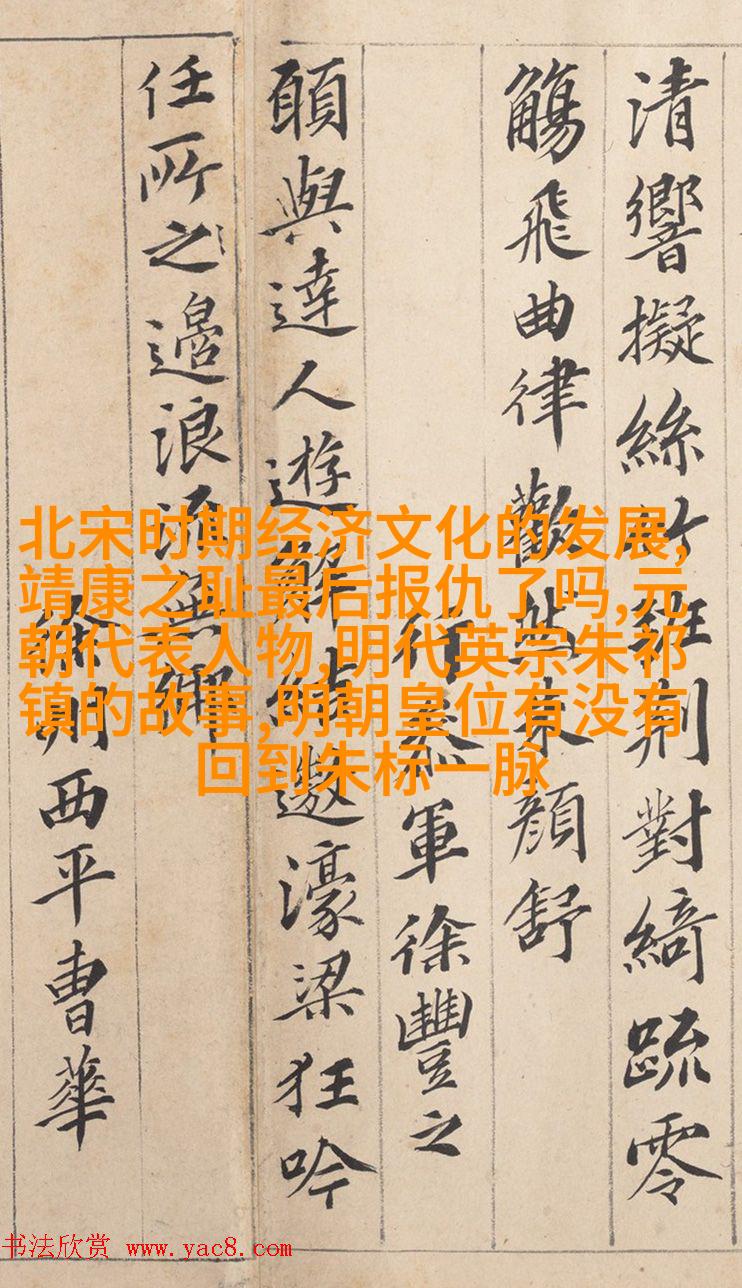 清響擬絲竹班荆對綺疏零
觴飛曲律歡然朱顔舒
行參軍徐豐之
願與達人遊解結遨濠梁狂吟
任所之邉浪流無鄉
徐州西平曹華
北宋时期经济文化的发展,
靖康之耻最后报仇了吗,元
朝代表人物,明代英宗朱祁
镇的故事,明朝皇位有没有
回到朱标一脉
书法欣赏 www.yac8.com